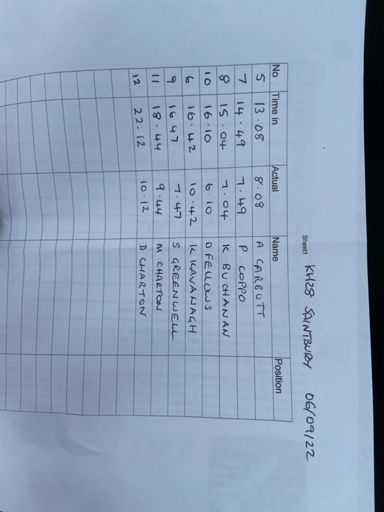 Sheet1 KH28 SAINTBURY 06/09/22
No Time in Actual Name Position
5 13.08 8.08 A CARBUTT
7 14.49 7.49 P COPPO
8 15.04 7.04 K BUCHANAN
10 16.10 6.10 D FELLOWS
6 16.42 10.42 K KAVANAGH
9 16 47 7.47 S GREENWELL
11 18.44 9.44 M CHARTON
12 22.12 10.12 D CHARTON